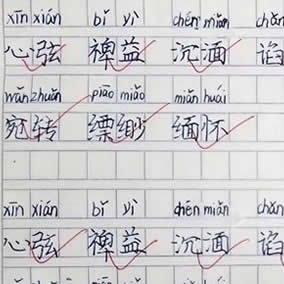 xīn xián bì yì chén miǎn chǎn
心弦 裨益 沉湎 谄
wǎn zhuǎn piāo miǎo miǎn huái
宛转 缥缈 缅怀
xīn xián bì yì chén miǎn chǎn
心弦 裨益 沉湎 谄